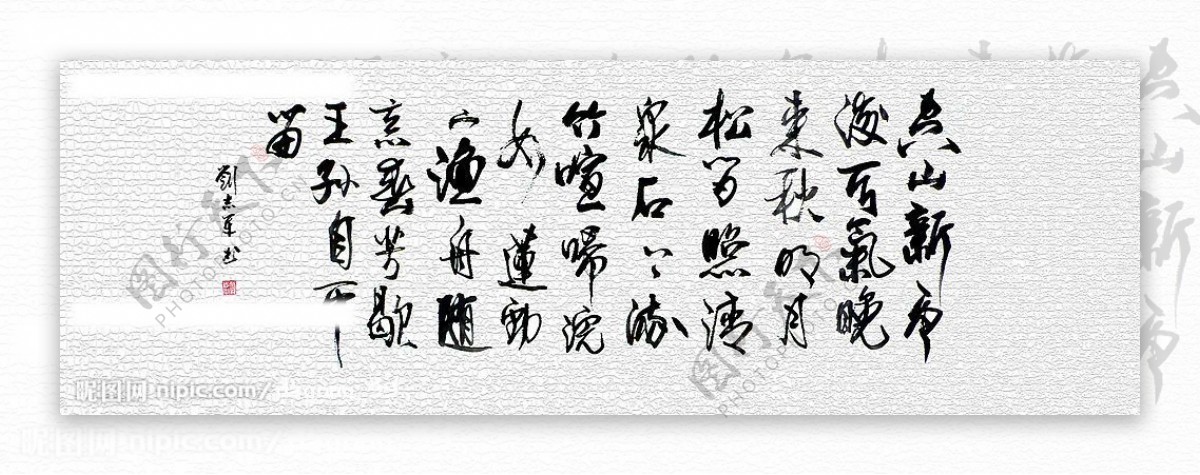 空山新雨
後天氣晚
來秋明月
松間照清
泉石上流
竹喧歸浣
女蓮動
下漁舟隨
意春芳歇
王孫自可
留
劉志軍書
昵图网 nipic.com/
昵图网 nipic.com/